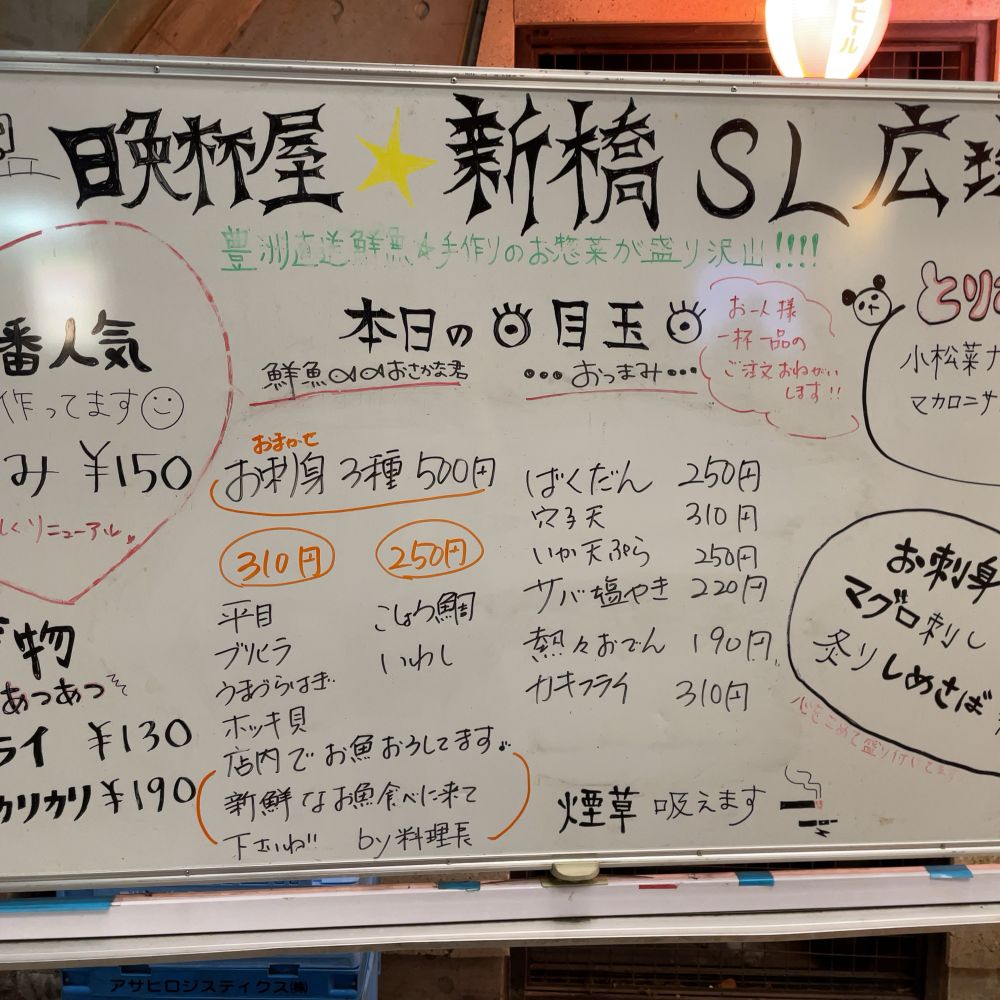 ビール
晩杯屋★新橋SL広
豊洲直送鮮魚☆手作りのお惣菜が盛り沢山!!!!
番人気
作ってます
み ¥150
リニューアル
物
あつあつ
ライ ¥130
カリカリ ¥190
本日の目玉
鮮魚 おさかな君
おまかせ
お刺身 3種 500円
310円 250円
平目 こしょう鯛
ブリヒラ いわし
うまづらはぎ
ホッキ貝
店内でお魚おろしてます。
新鮮なお魚食べに来て
下さいね by料理長
•••おつまみ•••
お一人様
一杯一品の
ご注文おねがい
します!!
ばくだん 250円
穴子天 310円
いか天ぷら 250円
サバ塩やき 220円
熱々おでん 190円
カキフライ 310円
煙草 吸えます
とり
小松菜ナ
マカロニサ
お刺身
マグロ刺し
炙りしめさば
心をこめて盛り付けてます
アサヒロジスティクス㈱